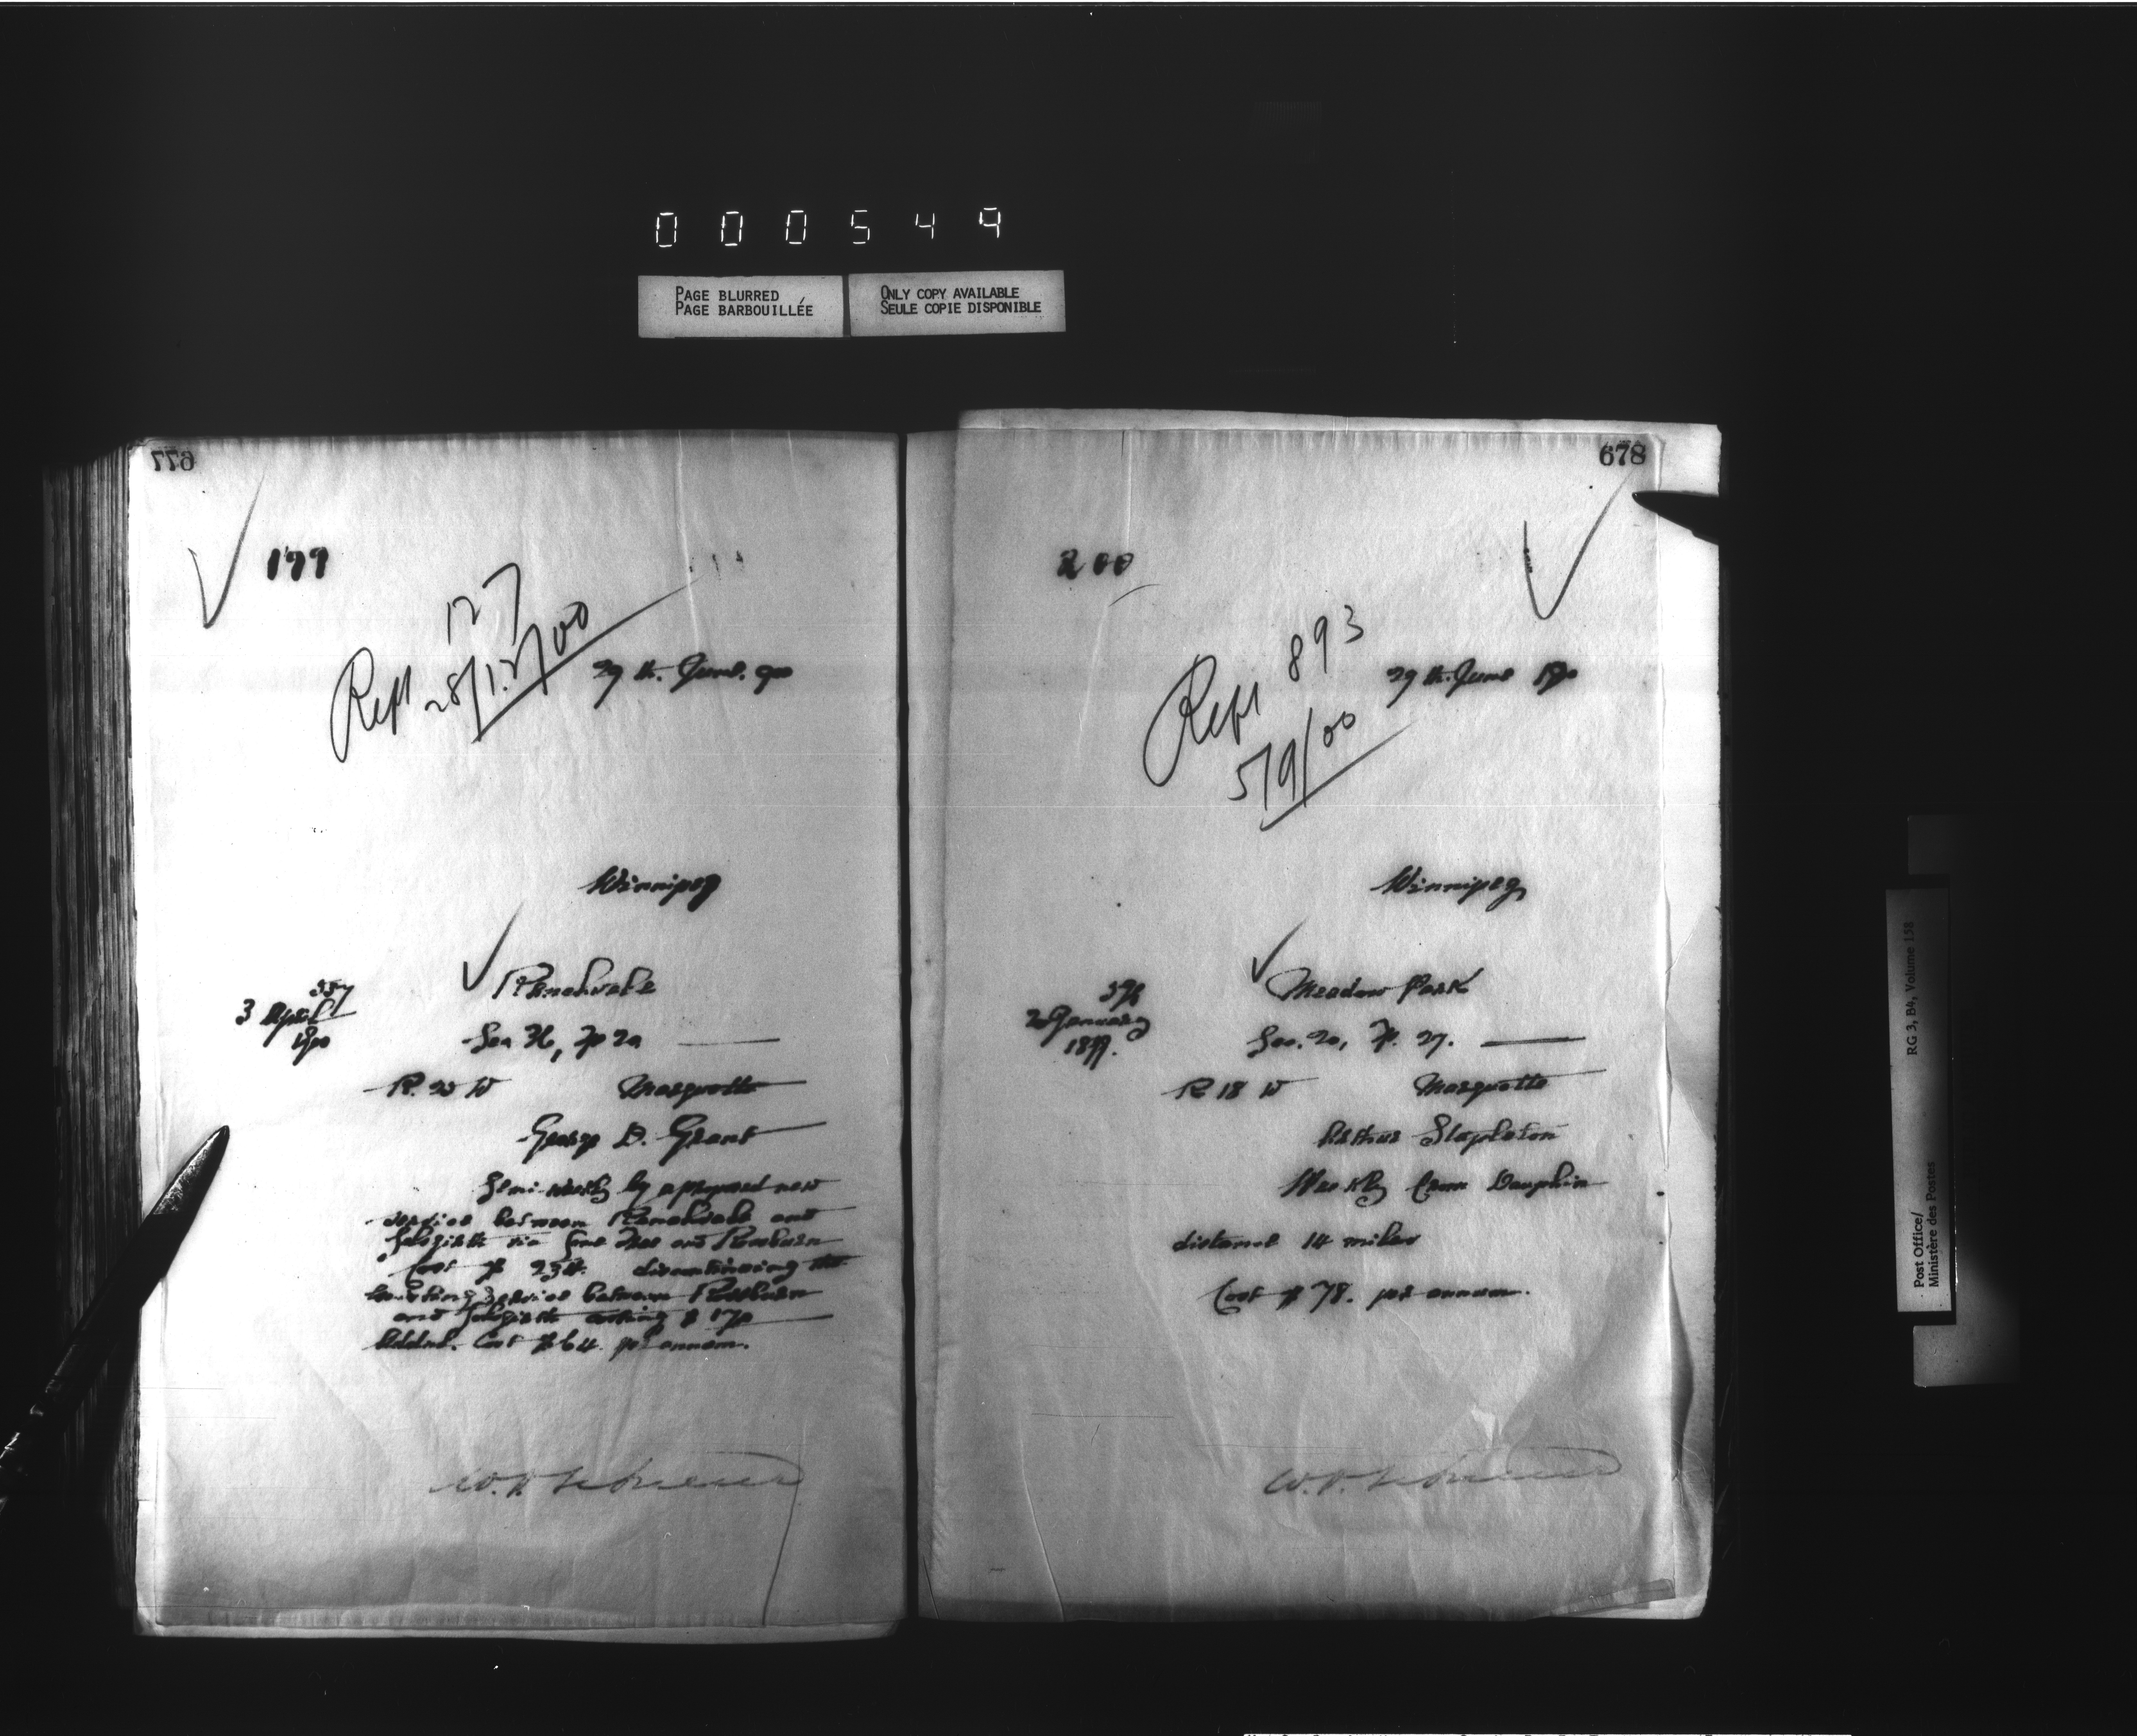 000549
PAGE BLURRED
PAGE BARBOUILLÉE
ONLY COPY AVAILABLE
SEULE COPIE DISPONIBLE
677
199
Rept 127
28/12/00
29 th. June. 900
Winnipeg
3 April
1900
Sec 36, Tp 20
R. 20 W Marquette
George D. Grant
Semi-weekly by a proposed new
service between and
via and Rossburn
Cost $ 234. discontinuing the
existing service between Rossburn
and costing $ 170
Addnl. Cost $ 64. per annum.
678
200
Rept 893
5/9/00
29 th. June 1900
Winnipeg
January
1899.
Meadow Park
Sec. 20, Tp. 27.
R 18 W Marquette
Arthur Stapleton
Weekly from Dauphin
distance 14 miles
Cost $ 78. per annum.
RG 3, B4, Volume 158
Post Office/
Ministère des Postes